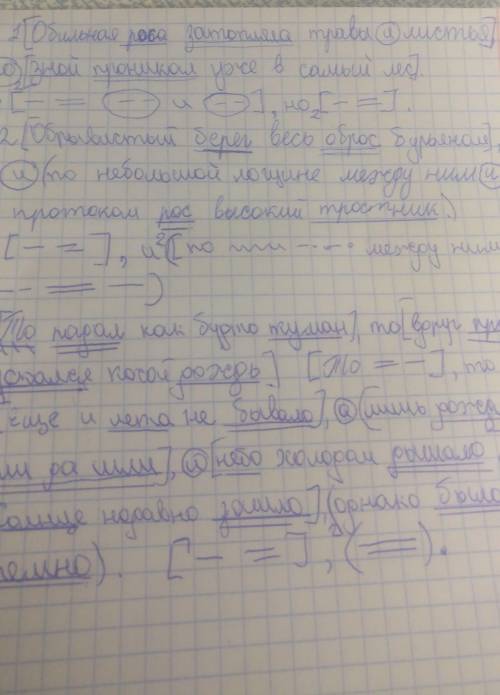 1[Обильная роса затопляла травы и листья]
но2[зной проникал уже в самый лес].
[– = – – и – –], но2[– =].
2.[Обрывистый берег весь оброс бурьяном],
и (по небольшой лощине между ним и
протоком рос высокий тростник.)
[– =], и2([по между ним
= –)
[То падал как будто туман], то [вдруг
косой дождь.] [То = –], то
еще и лета не бывало], а (лишь
да шли], и [небо холодом дышало
недавно зашло], (однако было
темно). [– =], (=).